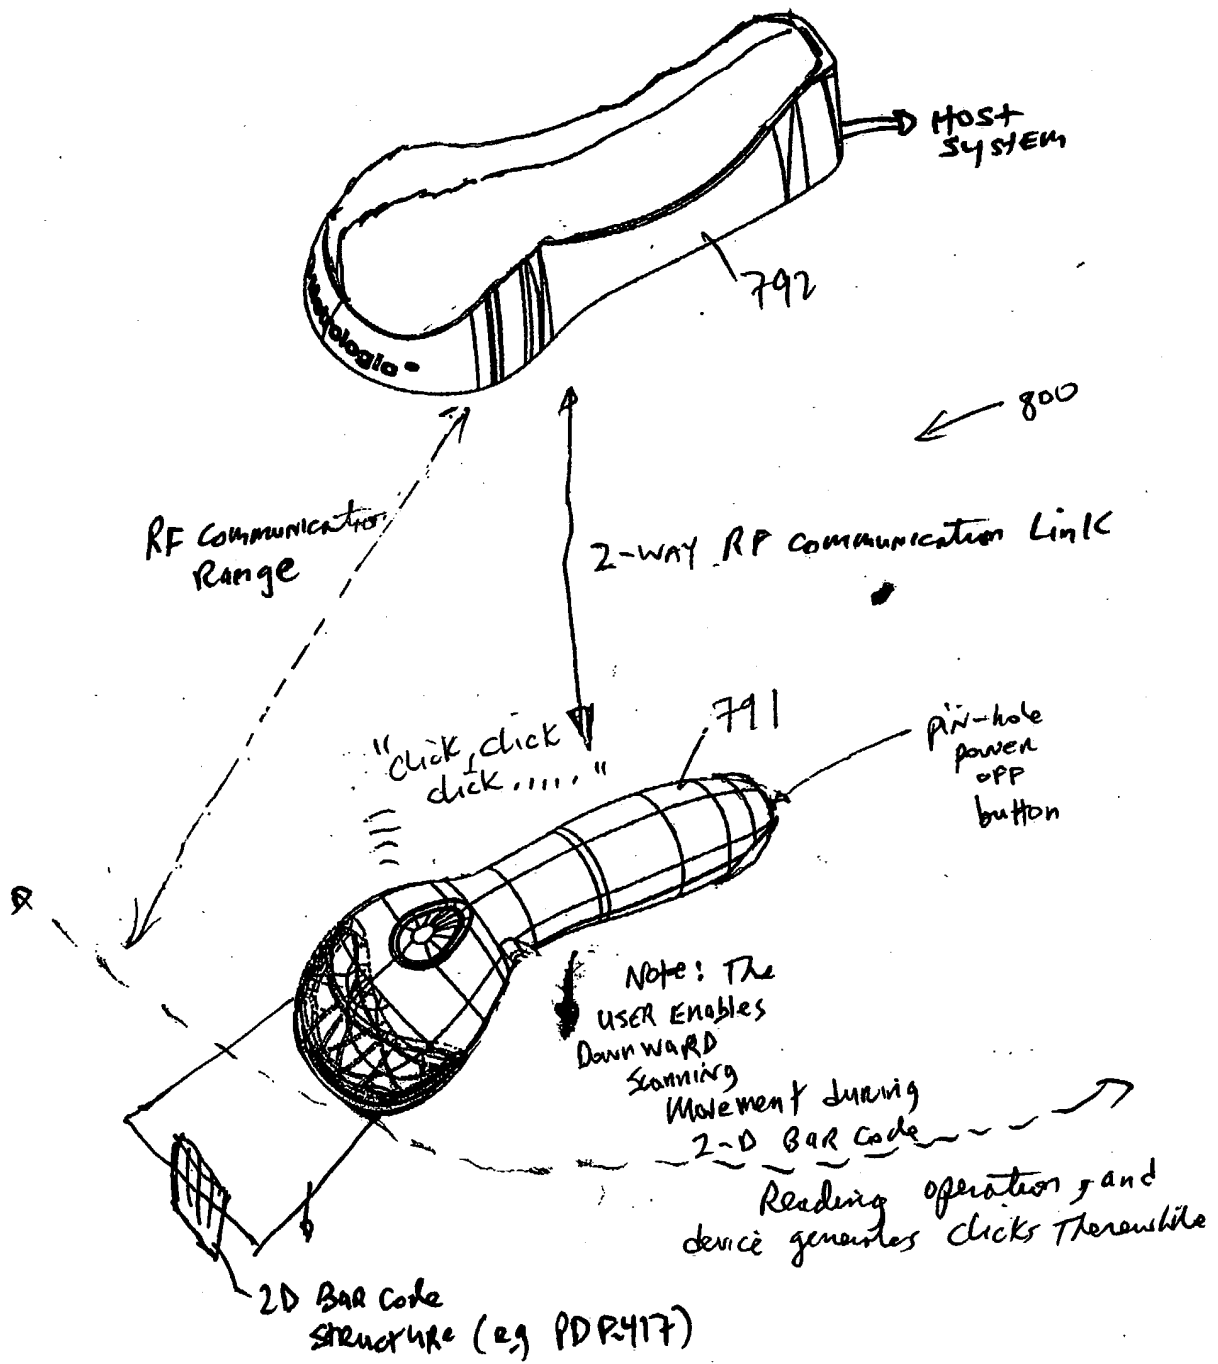 HOST
SYSTEM
792
metrologic
800
RF Communication
Range
2-WAY RF Communication Link
791
"click, click
click....."
pin-hole
power
off
button
Note: The
USER Enables
DownwaRD
Scanning
Movement during
2-D BaR Code
Reading operation, and
device generates clicks Therewhile
2D BaR Code
structure (eg PDF417)